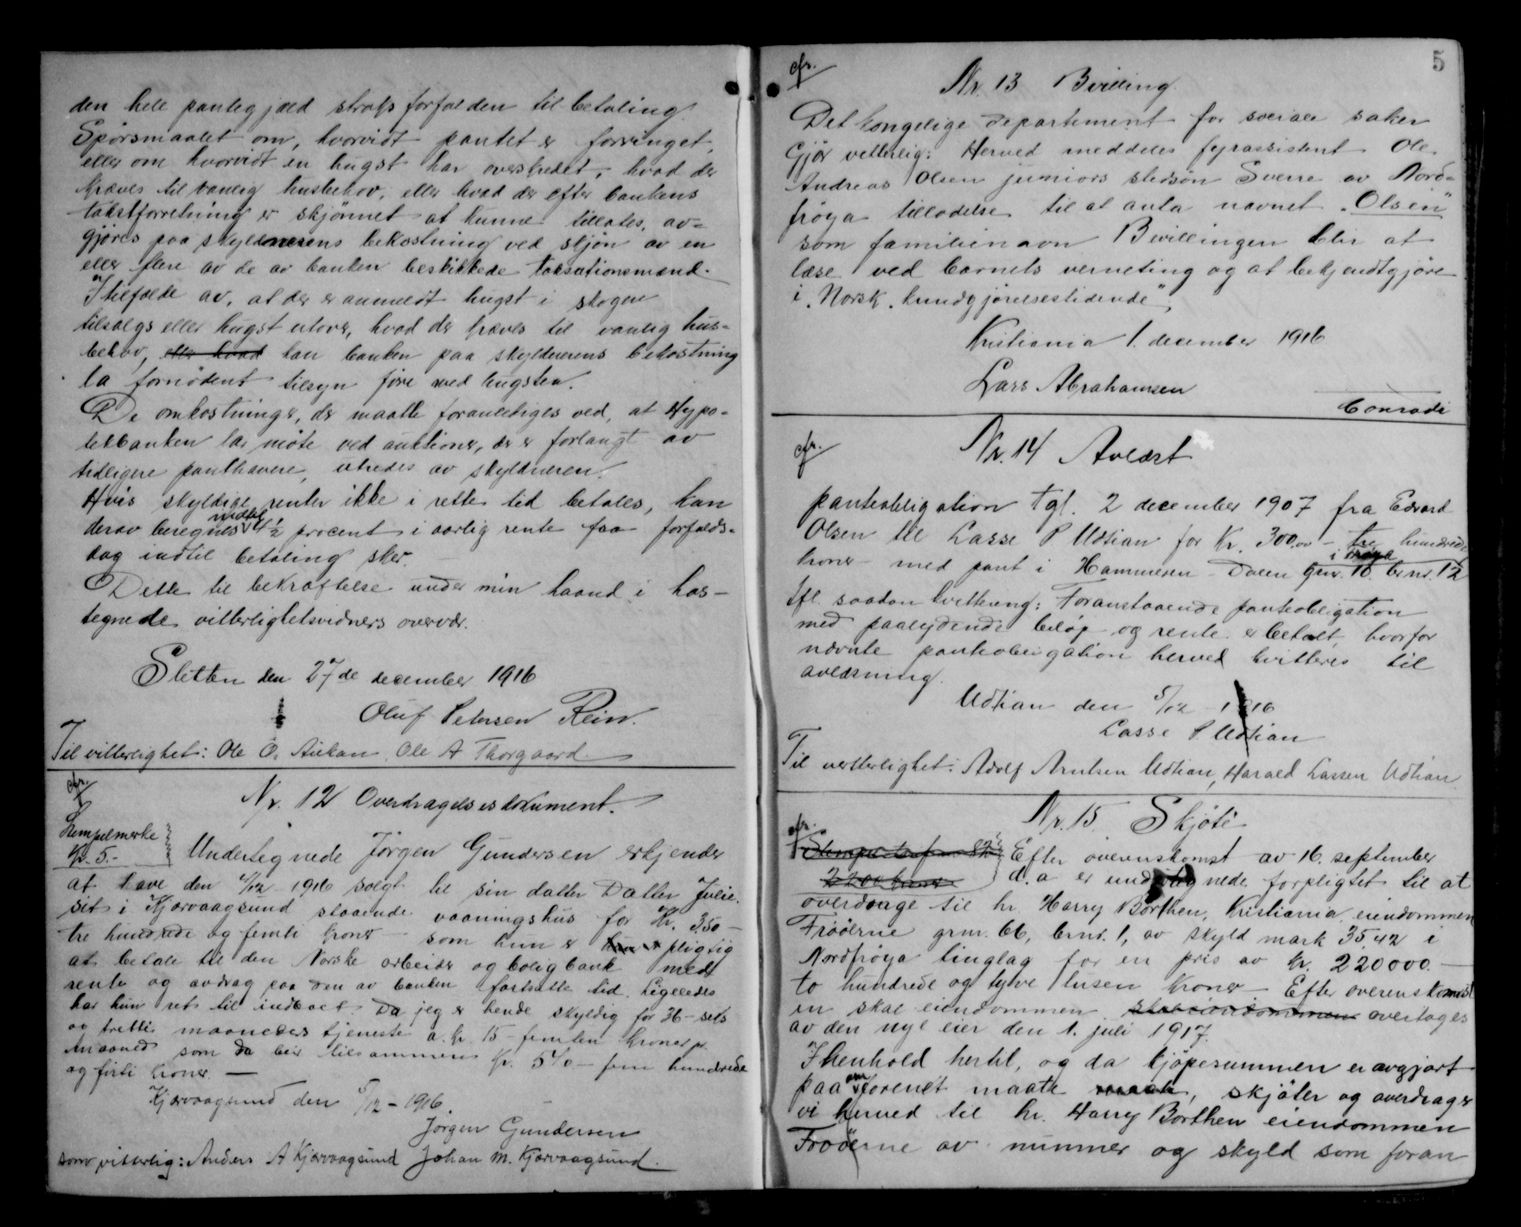 den hele pantegjæld straks forfalden til betaling.
Spørsmaalet om, hvorvidt pantet er forringet,
eller om hvorvidt en hugst har overskredet, hvad der
kræves til vanlig husbehov, eller hvad der efter bankens
takstforretning er skjønnet at kunne tillates, av-
gjøres paa skyldnerens bekostning ved skjøn av en
eller flere av de av banken beskikkede taksationsmænd.
I tilfælde av, at der er anmeldt hugst i skogen
tilsalgs eller hugst utover, hvad der kræves til vanlig hus-
behov, eller hvad kan banken paa skyldnerens bekostning
la fornødent tilsyn føre med hugsten.
De omkostninger, der maatte foranlediges ved, at Hypo-
tekbanken lar møte ved auktioner, der er forlangt av
tidligere panthavere, utredes av skyldneren.
Hvis skyldige renter ikke i rette tid betales, kan
derav beregnes indtil 4½ procent i aarlig rente fra forfalds-
dag indtil betaling sker.
Dette til bekræftelse under min haand i hos-
tegnede vitterlighetsvidners overvær.
Sletten den 27de december 1916
Oluf Petersen Rein.
Til vitterlighet: Ole O. Aukan, Ole A Thorgaard
cfr.
Nr. 12 Overdragelsesdokument.
Stempelmerke
kr. 5.-
Undertegnede Jørgen Gundersen erkjender
at have den 4/12 1916 solgt til sin datter Datter Julie
sit i Kjørvaagsund staaende vaaningshus for Kr. 350 -
tre hundrede og femti kroner - som hun er pligtig
at betale til den Norske arbeider og boligbank med
rente og avdrag paa den av banken fastsatte tid. Ligeledes
har hun ret til indboet. Da jeg er hende skyldig for 36 - seks
og tretti maaneders tjeneste a. kr 15 - femten kroner pr.
maaned som da blir tilsammen Kr. 540 - fem hundrede
og førti kroner. —
Kjørvaagsund den 5/12 - 1916.
Jørgen Gundersen
som vitterlig: Anders A Kjørvaagsund Johan M. Kjørvaagsund.
5
cfr.
Nr. 13 Bevilling
Det kongelige departement for sociale saker
Gjør vitterlig: Herved meddeles fyrassistent Ole
Andreas Olsen juniors stedsøn Sverre av Nord-
frøya tilladelse til at anta navnet "Olsen"
som familienavn Bevillingen blir at
læse ved barnets verneting og at bekjendtgjøre
i "Norsk kundgjørelsestidende"
Kristiania 1. december 1916
Lars Abrahamsen
Conradi
cfr.
Nr. 14 Avlæst
panteobligation tgl. 2 december 1907 fra Edvard
Olsen til Lasse P Udtian for Kr. 300,00 - tre hundrede
kroner - med pant i Hammeren - Dalen gnr. 10. brnr. 12
i Frøya
ifl. saadan kvittering: Foranstaaende panteobligation
med paalydende beløp og rente er betalt, hvorfor
nævnte panteobligation herved kvitteres til
avlæsning.
Udtian den 5/12 - 1916
Lasse P Udtian
Til vitterlighet: Adolf Arntsen Udtian, Harald Lassen Udtian
cfr.
Nr. 15 Skjøte
2200 kroner
Efter overenskomst av 16. september
d.a er undertegnede forpligtet til at
overdrage til hr. Harry Borthen, Kristiania eiendommen
Froöerne grnr. 66, brnr. 1, av skyld mark 35.42 i
Nordfrøya tinglag for en pris av kr. 220000. —
to hundrede og tyve tusen kroner - Efter overenskomst
en skal eiendommen skal eiendommen overtages
av den nye eier den 1. juli 1917.
I henhold hertil, og da kjøpesummen er avgjort
paa omforenet maate maate, skjøter og overdrager
vi herved til hr. Harry Borthen eiendommen
Froöerne av nummer og skyld som foran